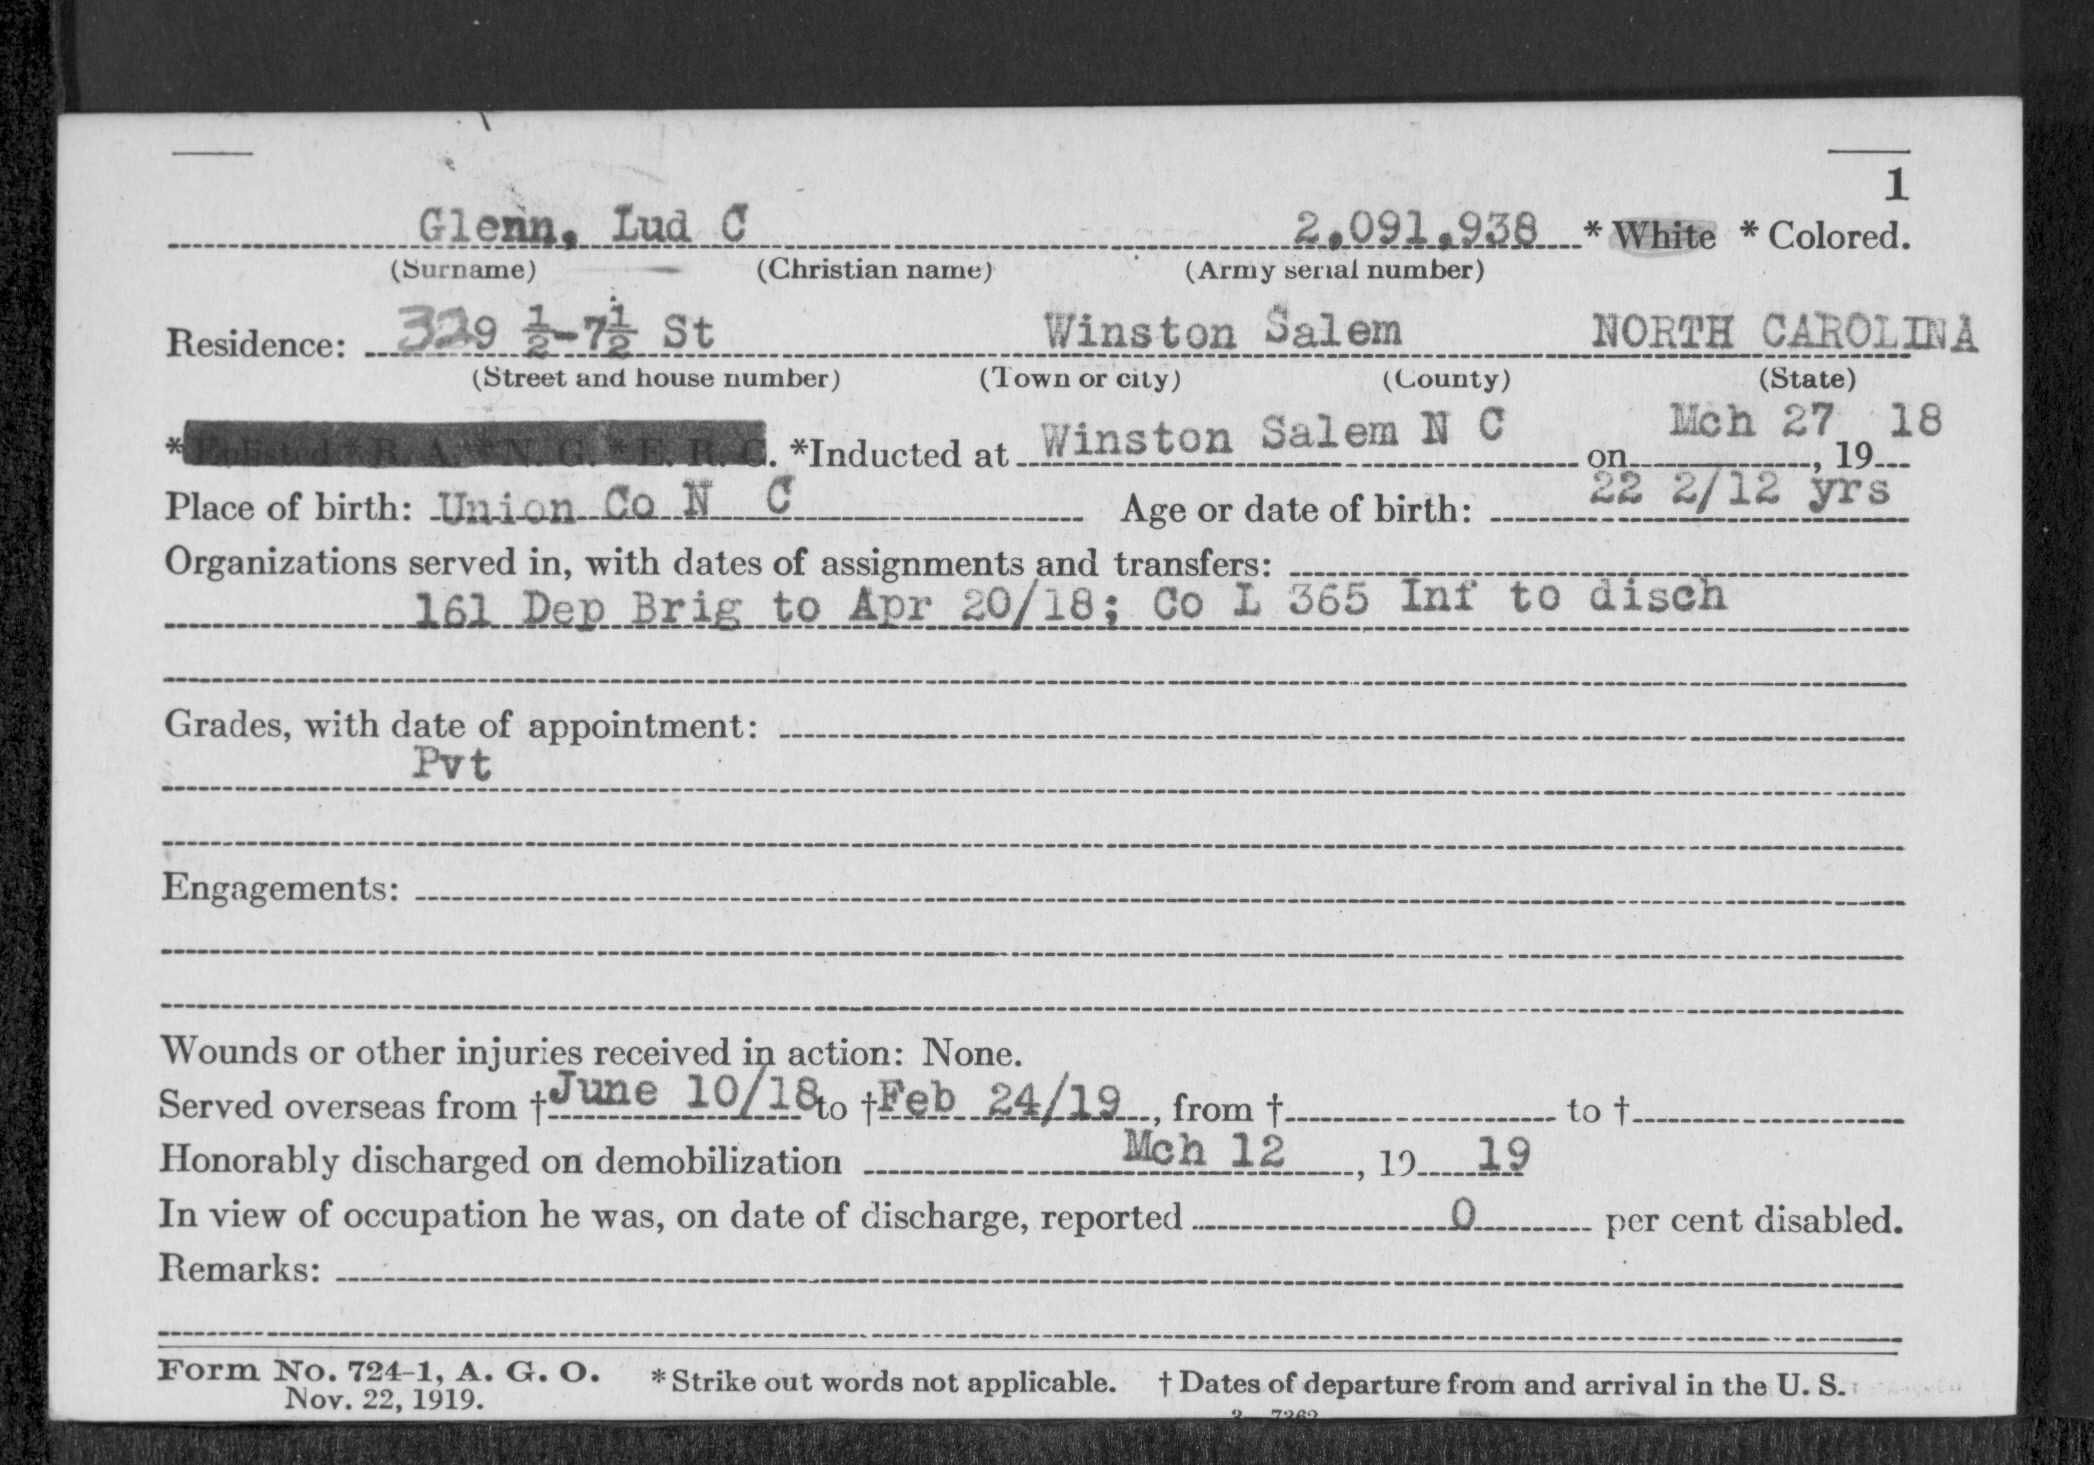 1
Glenn, Lud C 2,091,938 * White * Colored.
(Surname) (Christian name) (Army serial number)
Residence: 329 ½-7½ St Winston Salem NORTH CAROLINA
(Street and house number) (Town or city) (County) (State)
* Enlisted * R. A. * N. G. * E. R. C. *Inducted at Winston Salem N C on Mch 27, 19 18
Place of birth: Union Co N C Age or date of birth: 22 2/12 yrs
Organizations served in, with dates of assignments and transfers:
161 Dep Brig to Apr 20/18; Co L 365 Inf to disch
Grades, with date of appointment:
Pvt
Engagements:
Wounds or other injuries received in action: None.
Served overseas from †June 10/18 to †Feb 24/19, from † to †
Honorably discharged on demobilization Mch 12, 19 19
In view of occupation he was, on date of discharge, reported 0 per cent disabled.
Remarks:
Form No. 724-1, A. G. O. * Strike out words not applicable. † Dates of departure from and arrival in the U. S.
Nov. 22, 1919.